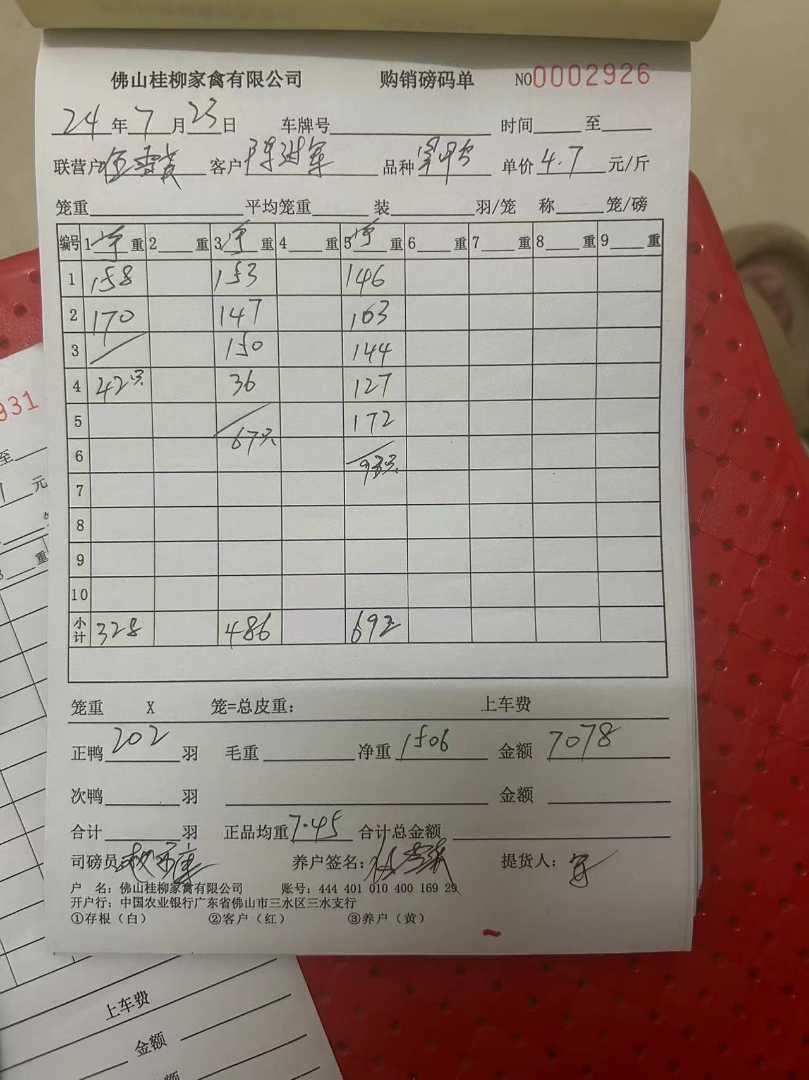 佛山桂柳家禽有限公司 购销磅码单 NO0002926
24年7月23日 车牌号 时间 至
联营户 客户 陈进军 品种 单价 4.7 元/斤
笼重 平均笼重 装 羽/笼 称 笼/磅
编号 1 净 重 2 重 3 净 重 4 重 5 净 重 6 重 7 重 8 重 9 重
1 158 153 146
2 170 147 163
3 150 144
4 42只 36 127
5 172
67只
6 93只
7
8
9
10
小计 328 486 692
笼重 X 笼=总皮重: 上车费
正鸭 202 羽 毛重 净重 1506 金额 7078
次鸭 羽 金额
合计 羽 正品均重 7.45 合计总金额
司磅员 养户签名: 提货人: 军
户 名: 佛山桂柳家禽有限公司 账号: 444 401 010 400 169 29
开户行: 中国农业银行广东省佛山市三水区三水支行
①存根(白) ②客户(红) ③养户(黄)
931
至
元
重
上车费
金额
额